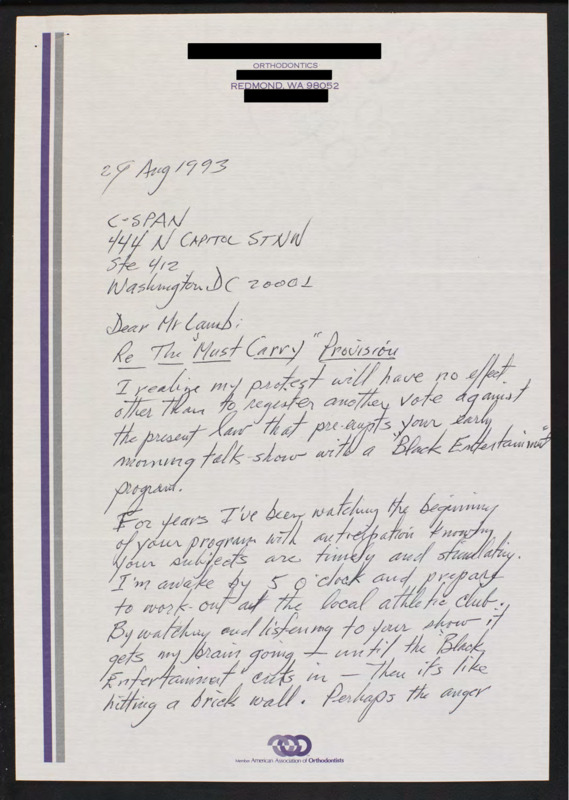 ORTHODONTICS
REDMOND, WA 98052
29 Aug 1993
C-SPAN
444 N CAPITOL ST NW
Ste 412
Washington DC 20001
Dear Mr Lamb:
Re The "Must Carry" Provision
I realize my protest will have no effect
other than to register another vote against
the present law that pre-empts your early
morning talk-show with a "Black Entertainment"
program.
For years I've been watching the beginning
of your program with anticipation knowing
your subjects are timely and stimulating.
I'm awake by 5 o'clock and prepare
to work-out at the local athletic club.
By watching and listening to your show it
gets my brain going – until the "Black
Entertainment" cuts in – Then it's like
hitting a brick wall. Perhaps the anger
Member American Association of Orthodontists